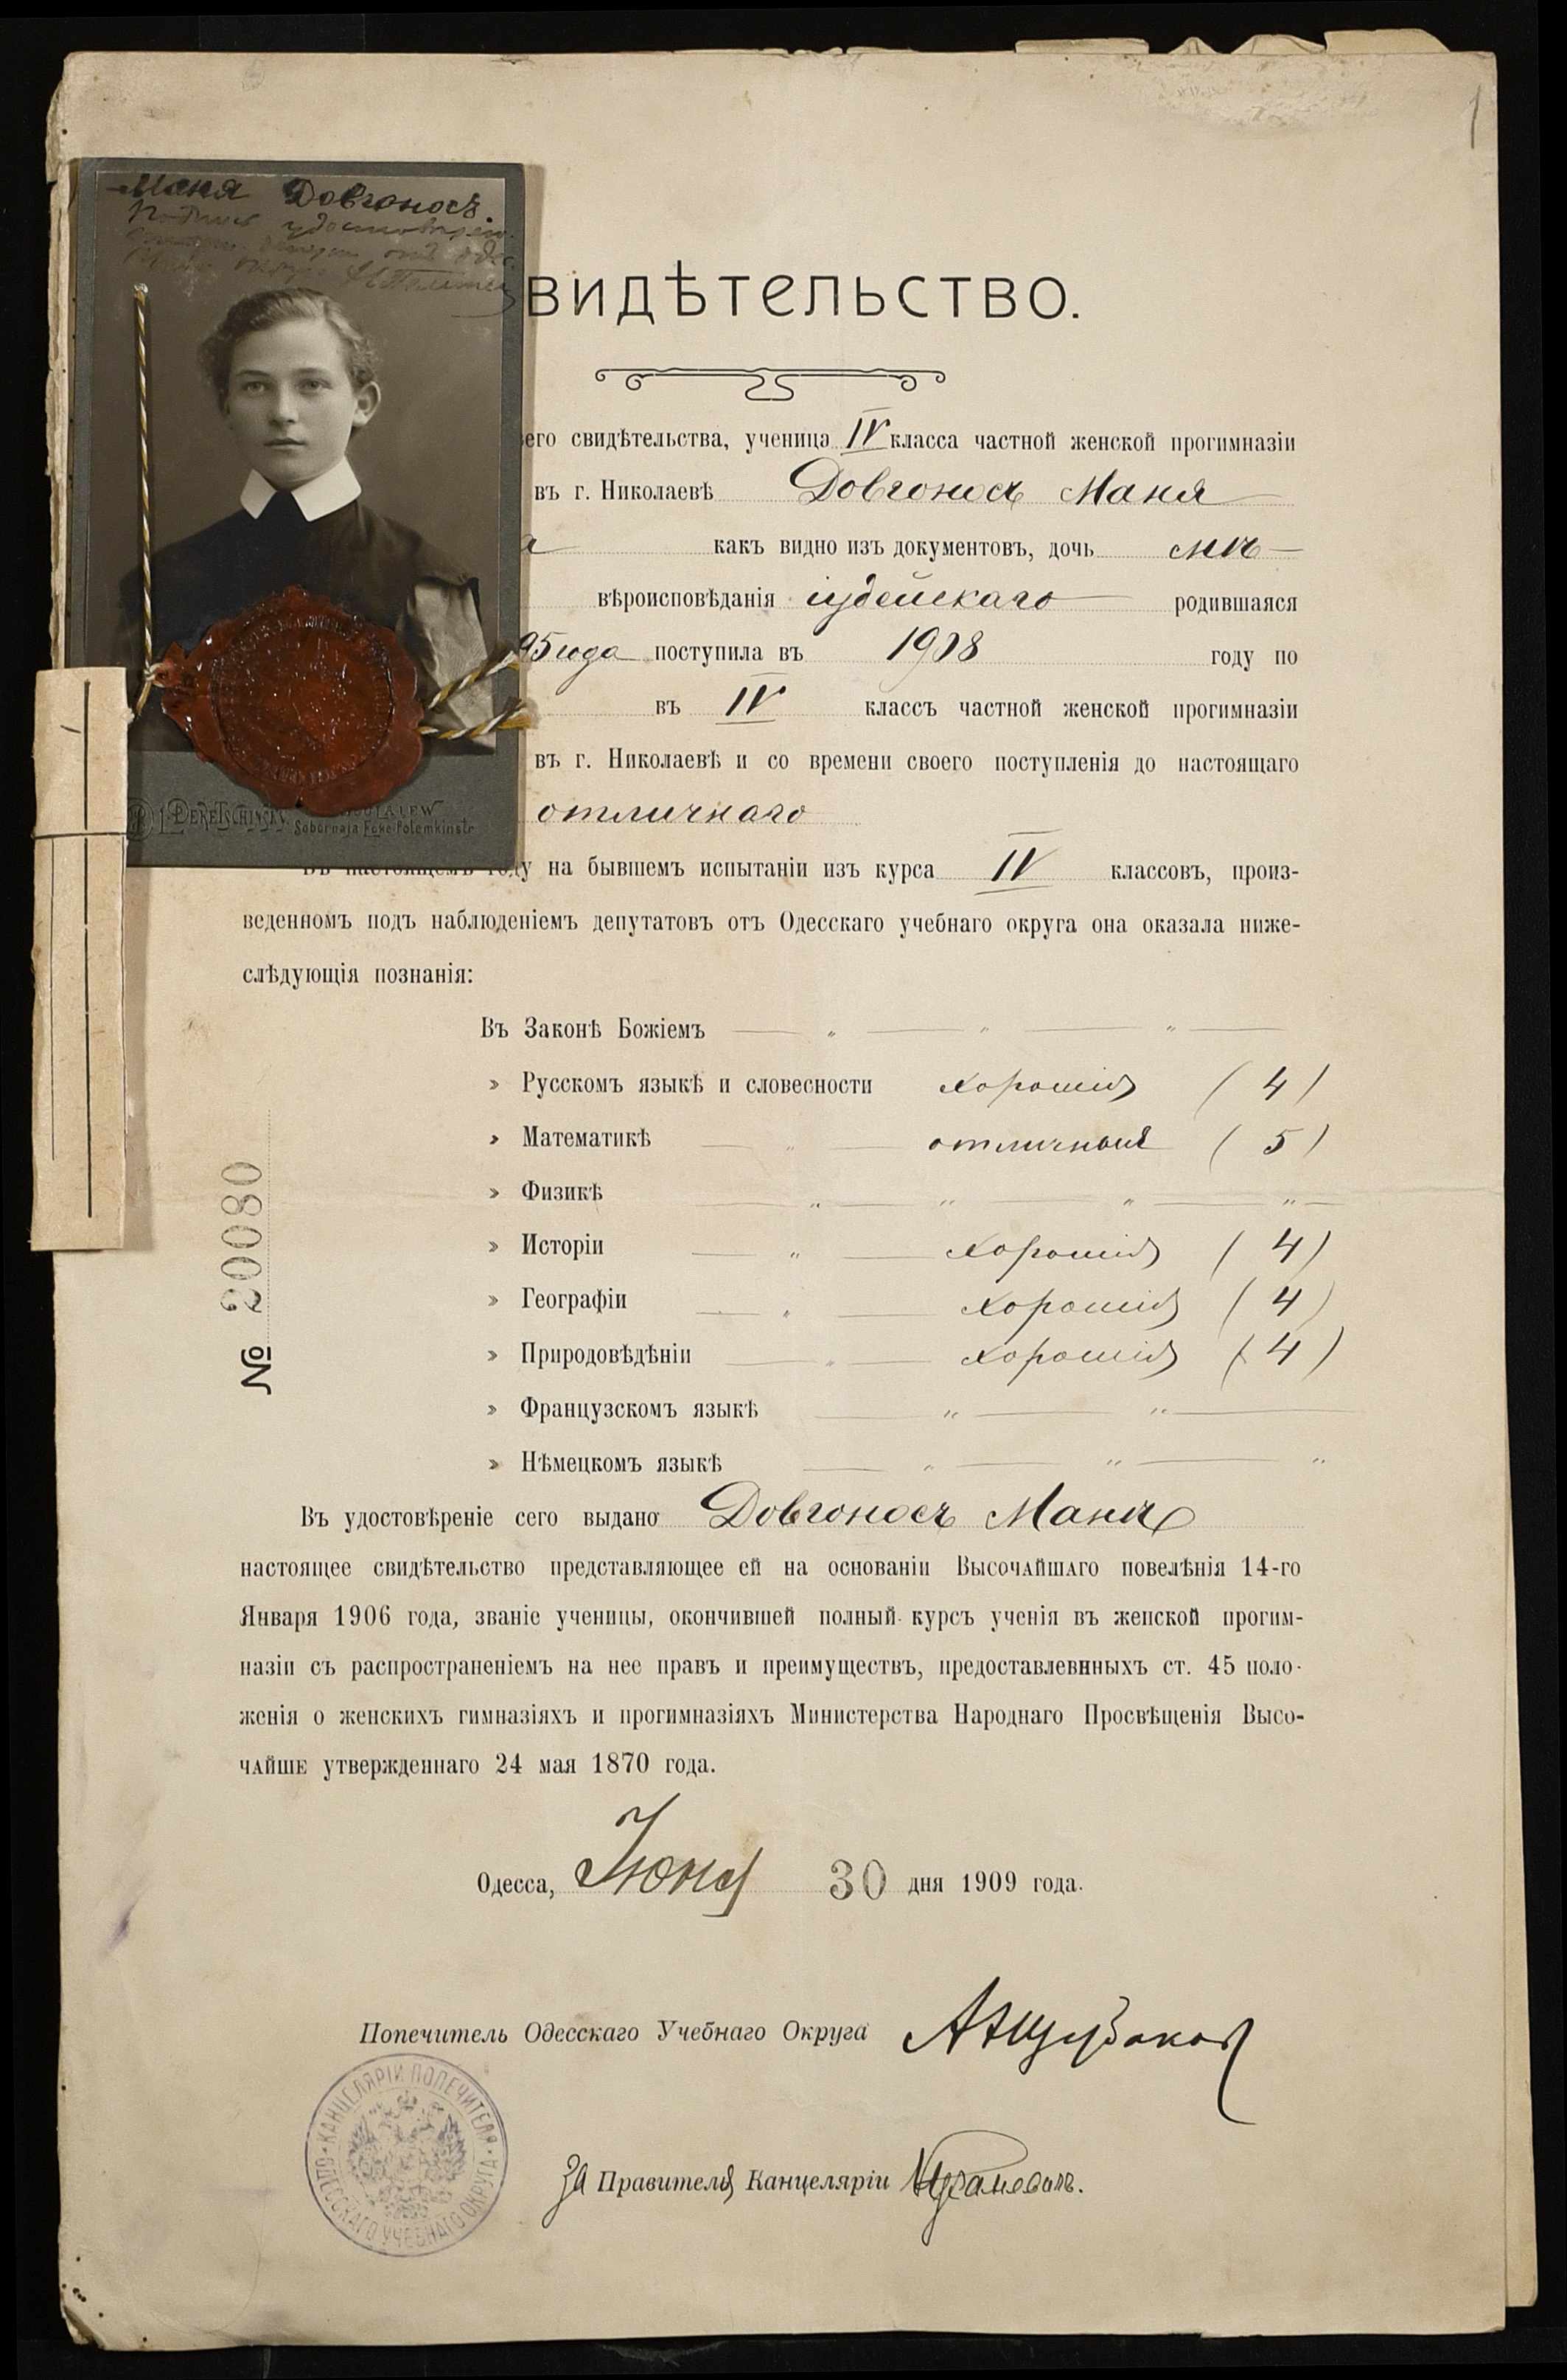 Маня Довгоносъ.
Подпись удостовѣряю.
ВИДѢТЕЛЬСТВО.
его свидѣтельства, ученица IV класса частной женской прогимназіи
въ г. Николаевѣ Довгоносъ Маня
а какъ видно изъ документовъ, дочь
вѣроисповѣданія іудейскаго родившаяся
95 года поступила въ 1908 году по
въ IV классъ частной женской прогимназіи
въ г. Николаевѣ и со времени своего поступленія до настоящаго
отличнаго
L. Peretschinsky.
Sobornaja Ecke Potemkinstr
Въ настоящемъ году на бывшемъ испытаніи изъ курса IV классовъ, произ-
веденномъ подъ наблюденіемъ депутатовъ отъ Одесскаго учебнаго округа она оказала ниже-
слѣдующія познанія:
Въ Законѣ Божіемъ — „ — „ — „ —
» Русскомъ языкѣ и словесности хорошія (4)
» Математикѣ — „ — отличныя (5)
» Физикѣ — „ — „ — „ — „ —
» Исторіи — „ — хорошія (4)
» Географіи — „ — хорошія (4)
» Природовѣдѣніи — „ — хорошія (4)
» Французскомъ языкѣ — „ — „ —
» Нѣмецкомъ языкѣ — „ — „ — „
№ 20080
Въ удостовѣреніе сего выдано Довгоносъ Манѣ
настоящее свидѣтельство представляющее ей на основаніи ВысочАйшАго повелѣнія 14-го
Января 1906 года, званіе ученицы, окончившей полный курсъ ученія въ женской прогим-
назіи съ распространеніемъ на нее правъ и преимуществъ, предоставлевнныхъ ст. 45 поло-
женія о женскихъ гимназіяхъ и прогимназіяхъ Министерства Народнаго Просвѣщенія Высо-
чАйшЕ утвержденнаго 24 мая 1870 года.
Одесса, Юня 30 дня 1909 года.
Попечитель Одесскаго Учебнаго Округа
КАНЦЕЛЯРІИ ПОПЕЧИТЕЛЯ ОДЕССКАГО УЧЕБНАГО ОКРУГА
За Правителя Канцеляріи